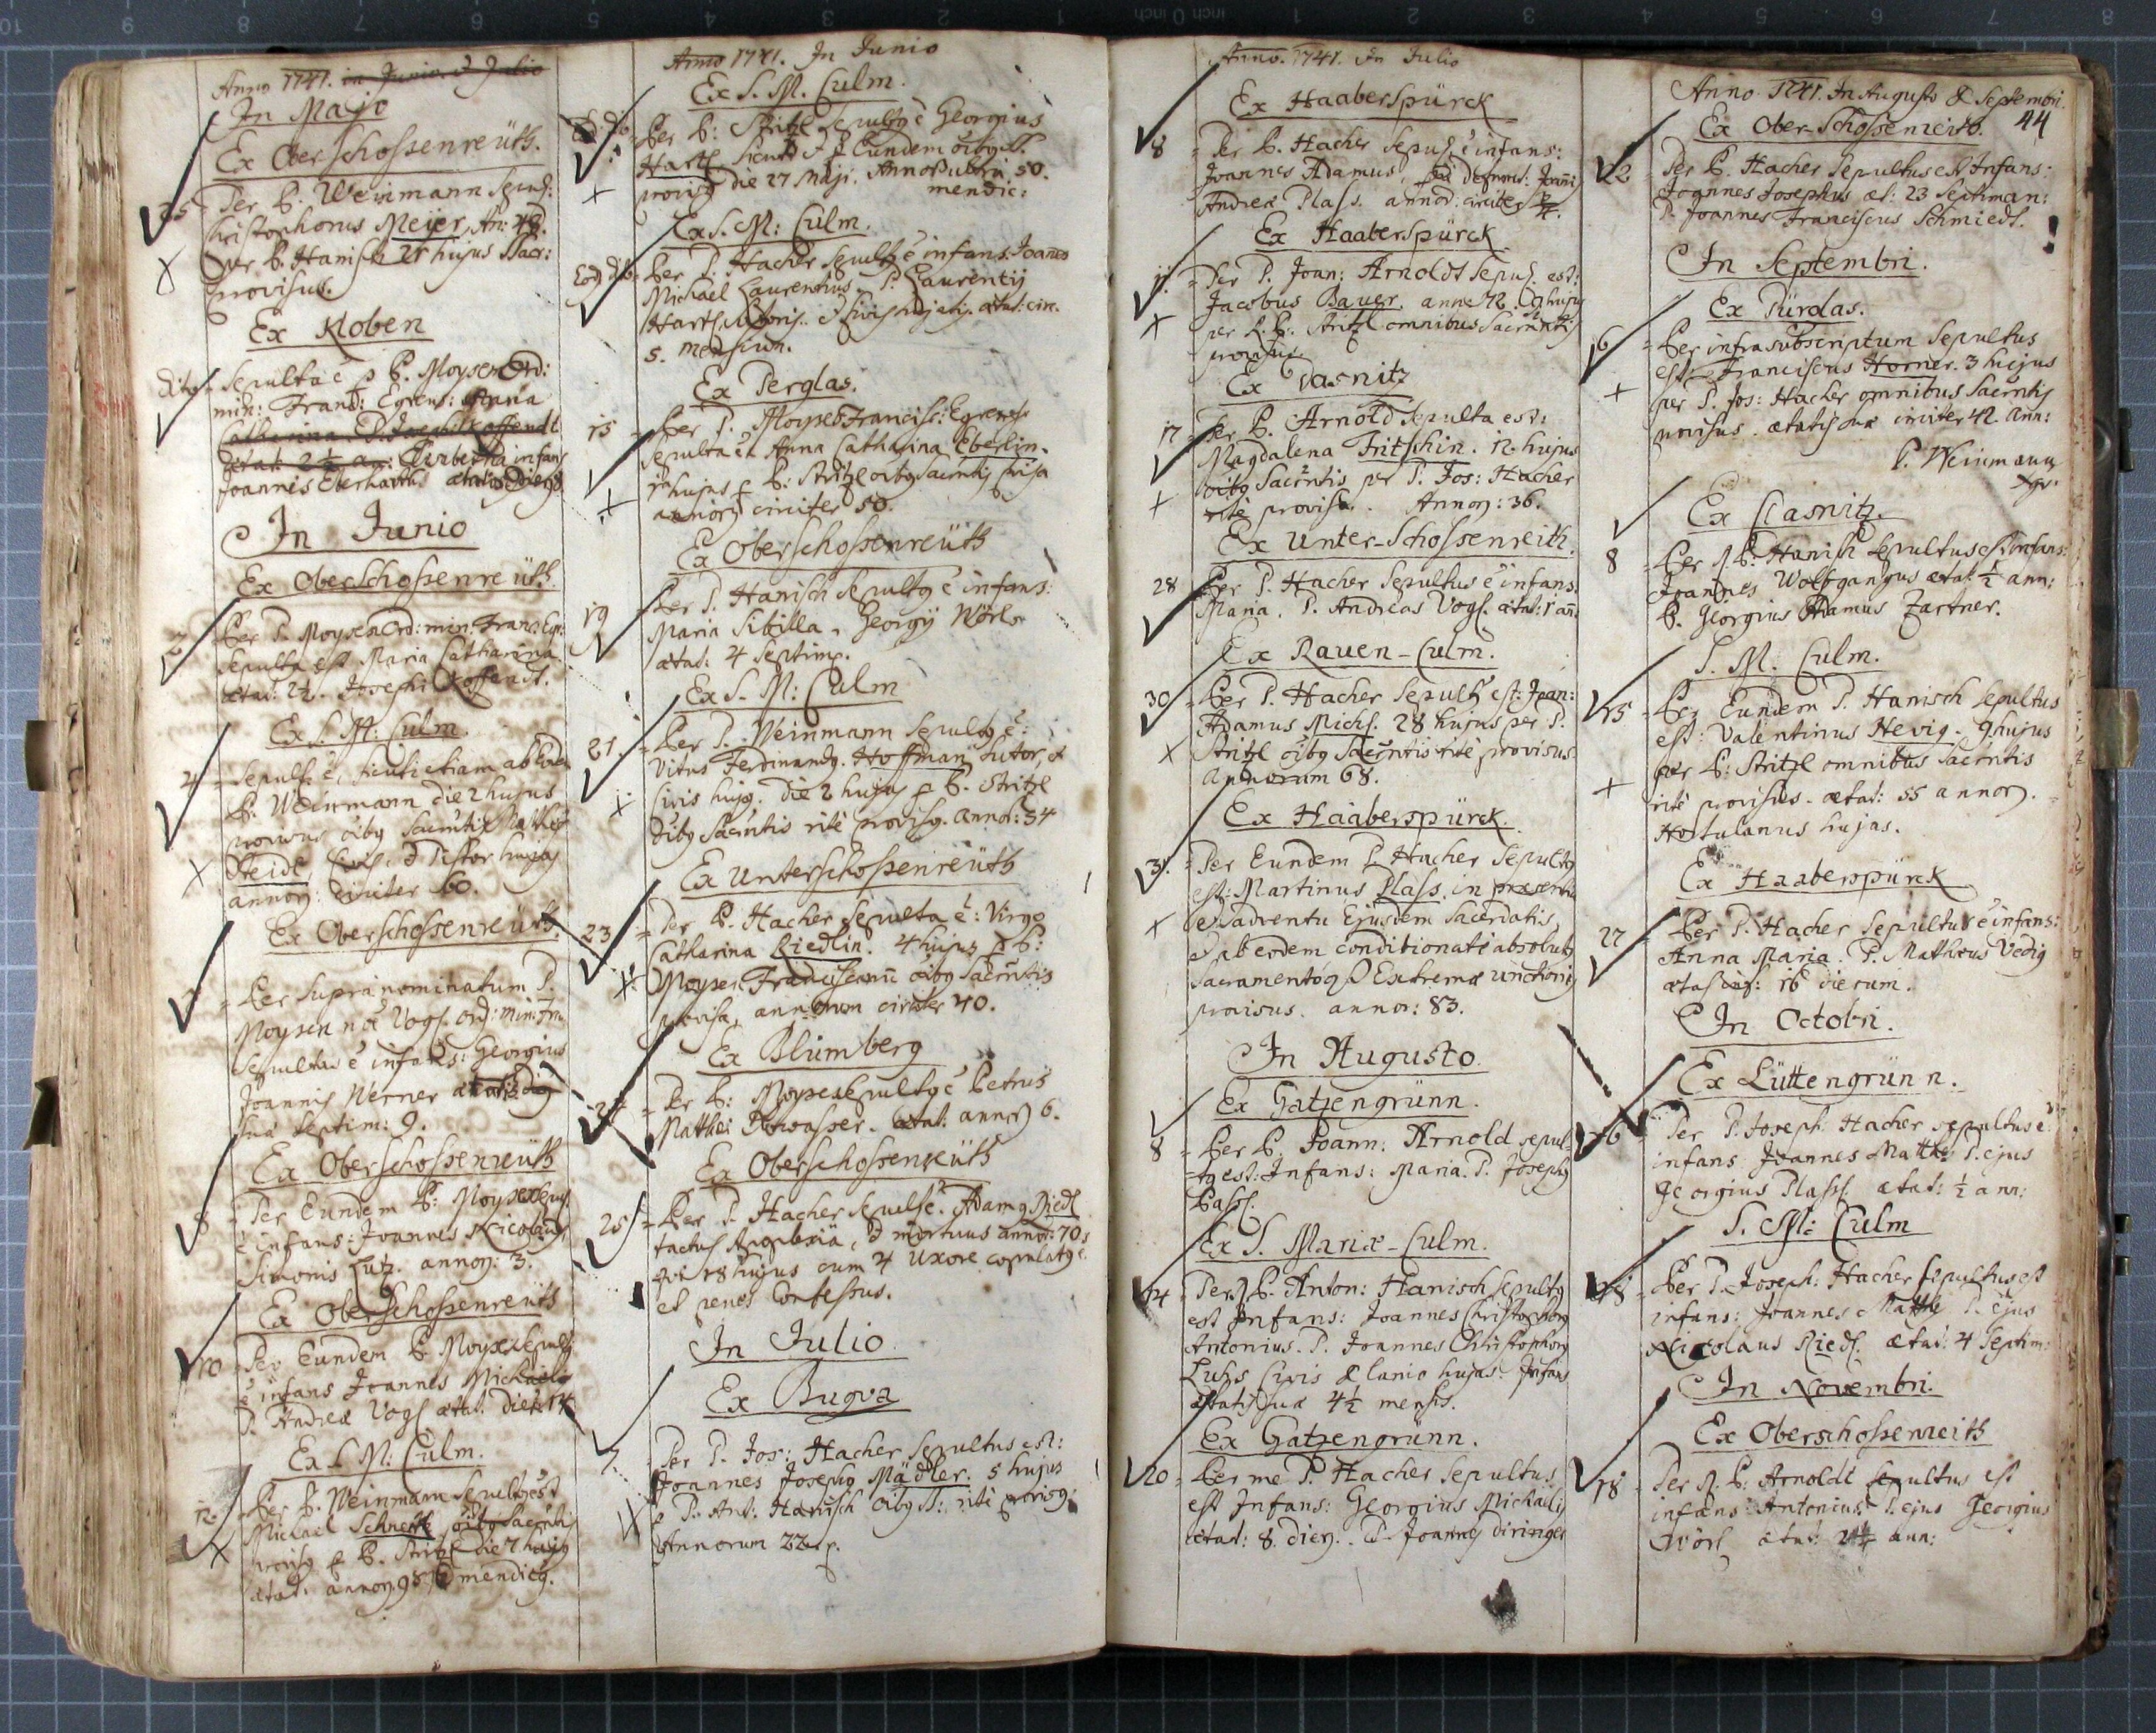 Anno 1741. in Junio & Julio
In Majo
Ex Oberschossenreüth.
25 = Per P. Weinmann Sepul:
Christophorus Meier, An: 48.
per P. Hanisch 25 hujus SSacr:
provisus.
Ex Kloben
dito = Sepulta ē p P. Moysen Ord:
min: Franc: Egrens: Maria
Catharina
ætat: 2½ an: infans
Joannis Eberharth
In Junio
Ex Oberschossenreüth.
2 = Per P. Moysen Ord: min: Franc: Egr:
Sepulta est Maria Catharina
ætat: 2½. Josephi Koffendt.
Ex S. M: Culm.
4 = Sepult ē, sicuti etiam ab Eod:
P. Weinmann die 2 hujus
oibg Sacmtis Mathes
Steidl, Civis, & Pistor hujas
annorum circiter 60.
Ex Oberschossenreüth.
7 = Per supra nominatum P.
Moysen Vogl. Ord: min: Fra
Sepultus ē infans: Georgius
Joannis Werner ætatis
suæ septim: 9.
Ex Oberschossenreüth
8 = Per Eundem P: Moysen Sepul
ē infans: Joannes Nicolaus
Simonis Lutz. annorum: 3.
Ex Oberschossenreüth
10 = Per Eundem P. Moysen Sepult
ē infans Joannes Michaelg
P. Andreæ Vogl ætat. dier: 14
Ex S. M: Culm.
12. = Per P. Weinmann Sepultg est
Michael oibg Sacmtis
provisg p P. Stritzl die 7 hujg
ætat: annorum 98 & mendicg.
Anno 1741. In Junio
Ex S. M. Culm.
Per P: Stritzl Sepultg ē Georgius
Hartl. Sicut & p Eundem oibg SS.
provisg die 27 Maji. Annorum 50.
mendic:
Ex S. M: Culm.
Eod: die = Per P. Hacher Sepultg ē infans: Joannes
Michael Laurentius. P. Laurentij
Hartl. & Civis hujatis. ætat: circ.
5. mensium.
Ex Perglas.
15 = Per P. Moysen Francisc: Egrens
Sepulta ē Anna Catharina Eberlin.
hujus p P: Stritzl oibg Sacmtis provisa
annorum circiter 50.
Ex Oberschossenreüth
19 = Per P. Hanisch Sepultg ē infans:
Maria Sibilla, Georgij Wörls
ætat: 4 Septimanarum.
Ex S. M: Culm
21. = Per P. Weinmann Sepultg ē:
Vitus Ferdinandg. Hoffman Sutor, &
Civis hujg. die 2 hujus p P. Stritzl
oibg Sacmtis ritè provisg. annor: 54
Ex Unterschossenreüth
23 = Per P. Hacher Sepulta ē: Virgo
Catharina Riedlin. 4 hujus p P:
Moysen Franciscanū oibg Sacmtis
provisa, annorum circiter 40.
Ex Blumberg
24 = Per P: Moysen Sepultg ē Petrus
Matthei ætat: annor 6.
Ex Oberschossenreüth
25 = Per P. Hacher Sepultg ē. Adamg Riedl
tactus Apoplexiā, & mortuus annor: 70
qui 18 hujus cum 4 Uxore copulatg ē
et penes Confessus.
In Julio
Ex Bugva
7. Per P. Jos: Hacher Sepultus est:
Joannes Josephg Mädler. 5 hujus
à P. Ant: Hanisch oibg SS: ritè provisg.
Annorum 22.
Anno. 1741. In Julio
Ex Haaberspürck
8 = Per P. Hacher Sepul: ē infans:
Joannes Adamus
Andreæ Plass. annor. circiter
Ex Haaberspürck
11. = Per P. Joan: Arnoldt Sepul: est:
Jacobus Bauer. anno: 72. 9 hujus
per P: Stritzl omnibus Sacramentis
provisus
Ex Dasnitz
17 = Per P. Arnold Sepulta est:
Magdalena Fritschin. 12. hujus
oibg Sacmtis per P. Jos: Hacher
ritè provisa. Annor: 36.
Ex Unter-Schossenreith.
28 Per P. Hacher Sepultus ē infans.
Maria. P. Andreas Vogl. ætat: 1 an:
Ex Rauen-Culm.
30 = Per P. Hacher Sepult est: Joan:
Adamus Michl. 28 hujus per P.
Stritzl oibg Sacmtis ritè provisus
annorum 68.
Ex Haaberspürck.
31. = Per Eundem P. Hacher Sepultg
est: Martinus Plass. in præsentia
& adventu Ejusdem Sacerdotis,
& ab eodem conditionatè absolutg
Sacramentoq Extremæ unctionis
provisus. annor: 83.
In Augusto.
Ex Gatzengrünn.
8 = Per P. Joann: Arnold sepul-
=tg est: Infans: Maria. P. Josephg
Ex S. Mariæ-Culm.
14 = Per P. Anton: Hanisch Sepultg
est Infans: Joannes Christophorg
Antonius. P. Joannes Christophorg
Luks Civis & lanio hujas. Infans
Ætatis suæ 4½ mensis.
Ex Gatzengrünn.
20 = Per me P. Hacher Sepultus
est Infans: Georgius Michaelis
ætat: 8. dierum. P. Joannes diringer
Anno 1741. In Augusto & Septembri.
44
Ex Ober-Schossenreith.
22 = Per P. Hacher Sepultus est Infans:
Joannes Josephus æt: 23 septiman:
P. Joannes Franciscus Schmiedt.
In Septembri.
Ex Pürglas.
6 = Per infra subscriptum Sepultus
est: Franciscus Horner. 3 hujus
per P. Jos: Hacher omnibus Sacmtis
provisus. ætatis suæ circiter 42. ann:
P. Weinmann
Ex Dasnitz.
8 = Per P. Hanisch Sepultus est infans:
Joannes Wolfgangus ætat: ½ ann:
P. Georgius Adamus Zartner.
S. M. Culm.
15 = Per Eundem P. Hanisch Sepultus
est: Valentinus Hevig. 9 hujus
per P: Stritzl omnibus Sacmtis
ritè provisus. ætat: 55 annor.
Hortulanus hujas.
Ex Haaberspürck
27 = Per P. Hacher Sepultus ē infans:
Anna Maria. P. Matheus Vedig
ætat: 16 dierum.
In Octobri.
Ex Lüttengrünn.
16 = Per P. Joseph Hacher sepultus ē:
infans Joannes Matths P. ejus
Georgius Plass. ætat: ½ ann:
S. M: Culm
28 = Per P. Joseph: Hacher Sepultus est
infans: Joannes Matths P. ejus
Nicolaus Riedl. ætat: 4 Septim:
In Novembri.
Ex Oberschossenreith
18 = Per P: Arnoldt Sepultus est
infans Antonius P. ejus Georgius
Wörl ætat: ann: